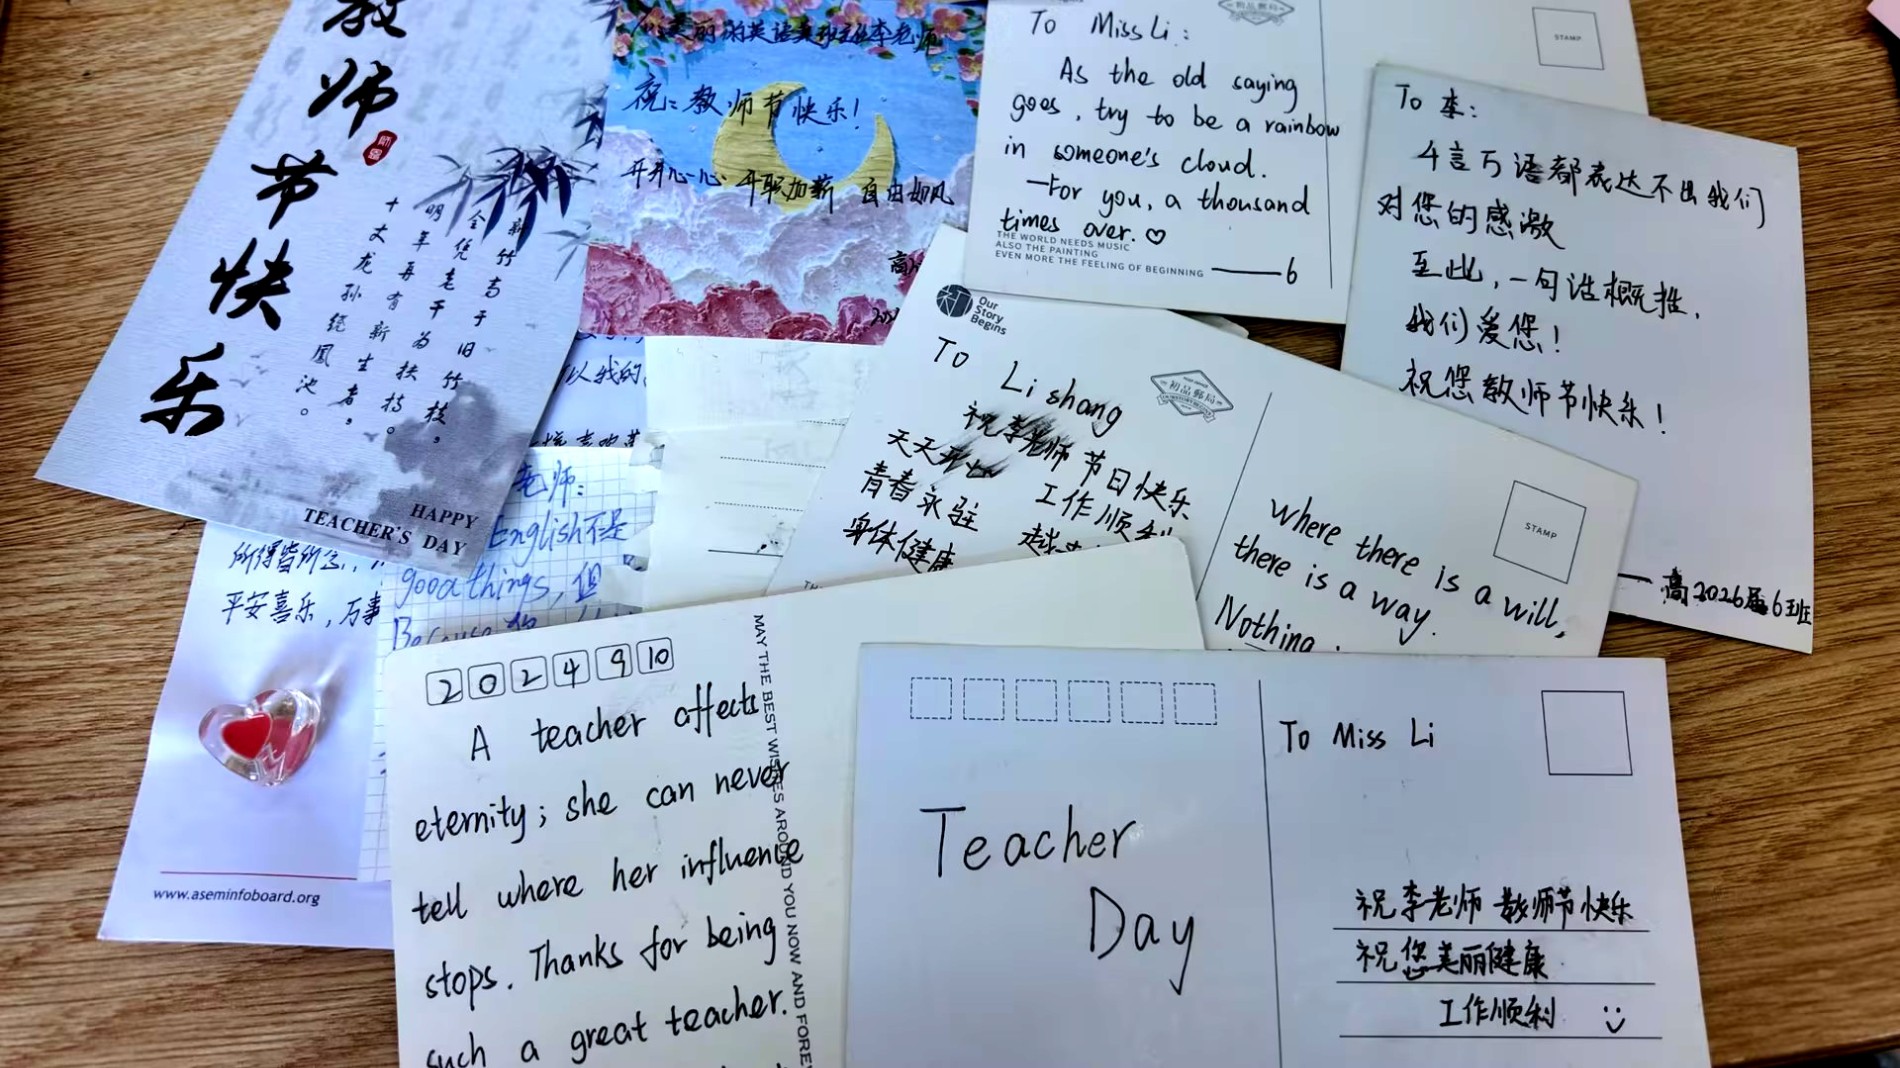 教
师
节
快
乐
师恩
新竹高于旧竹枝，
全凭老干为扶持。
明年再有新生者，
十丈龙孙绕凤池。
HAPPY
TEACHER'S DAY
祝：教师节快乐！
开开心心 升职加薪 自由如风
To Miss Li:
As the old saying
goes, try to be a rainbow
in someone's cloud.
—For you, a thousand
times over. ♡
THE WORLD NEEDS MUSIC
ALSO THE PAINTING
EVEN MORE THE FEELING OF BEGINNING
——6
初品郵局
STAMP
To 李:
千言万语都表达不出我们
对您的感激
至此，一句话概括，
我们爱您！
祝您教师节快乐！
—高2026届6班
Our
Story
Begins
To Li shang
初品郵局
祝李老师 节日快乐
天天开心 工作顺利
青春永驻
身体健康
STAMP
where there is a will,
there is a way.
Nothing
以我的
老师:
English不是
good things, 但
Because
平安喜乐，万事
www.aseminfoboard.org
2 0 2 4 9 10
A teacher affects
eternity; she can never
tell where her influence
stops. Thanks for being
such a great teacher.
MAY THE BEST WISHES AROUND YOU NOW AND FOREV
Teacher
Day
To Miss Li
祝李老师 教师节快乐
祝您美丽健康
工作顺利